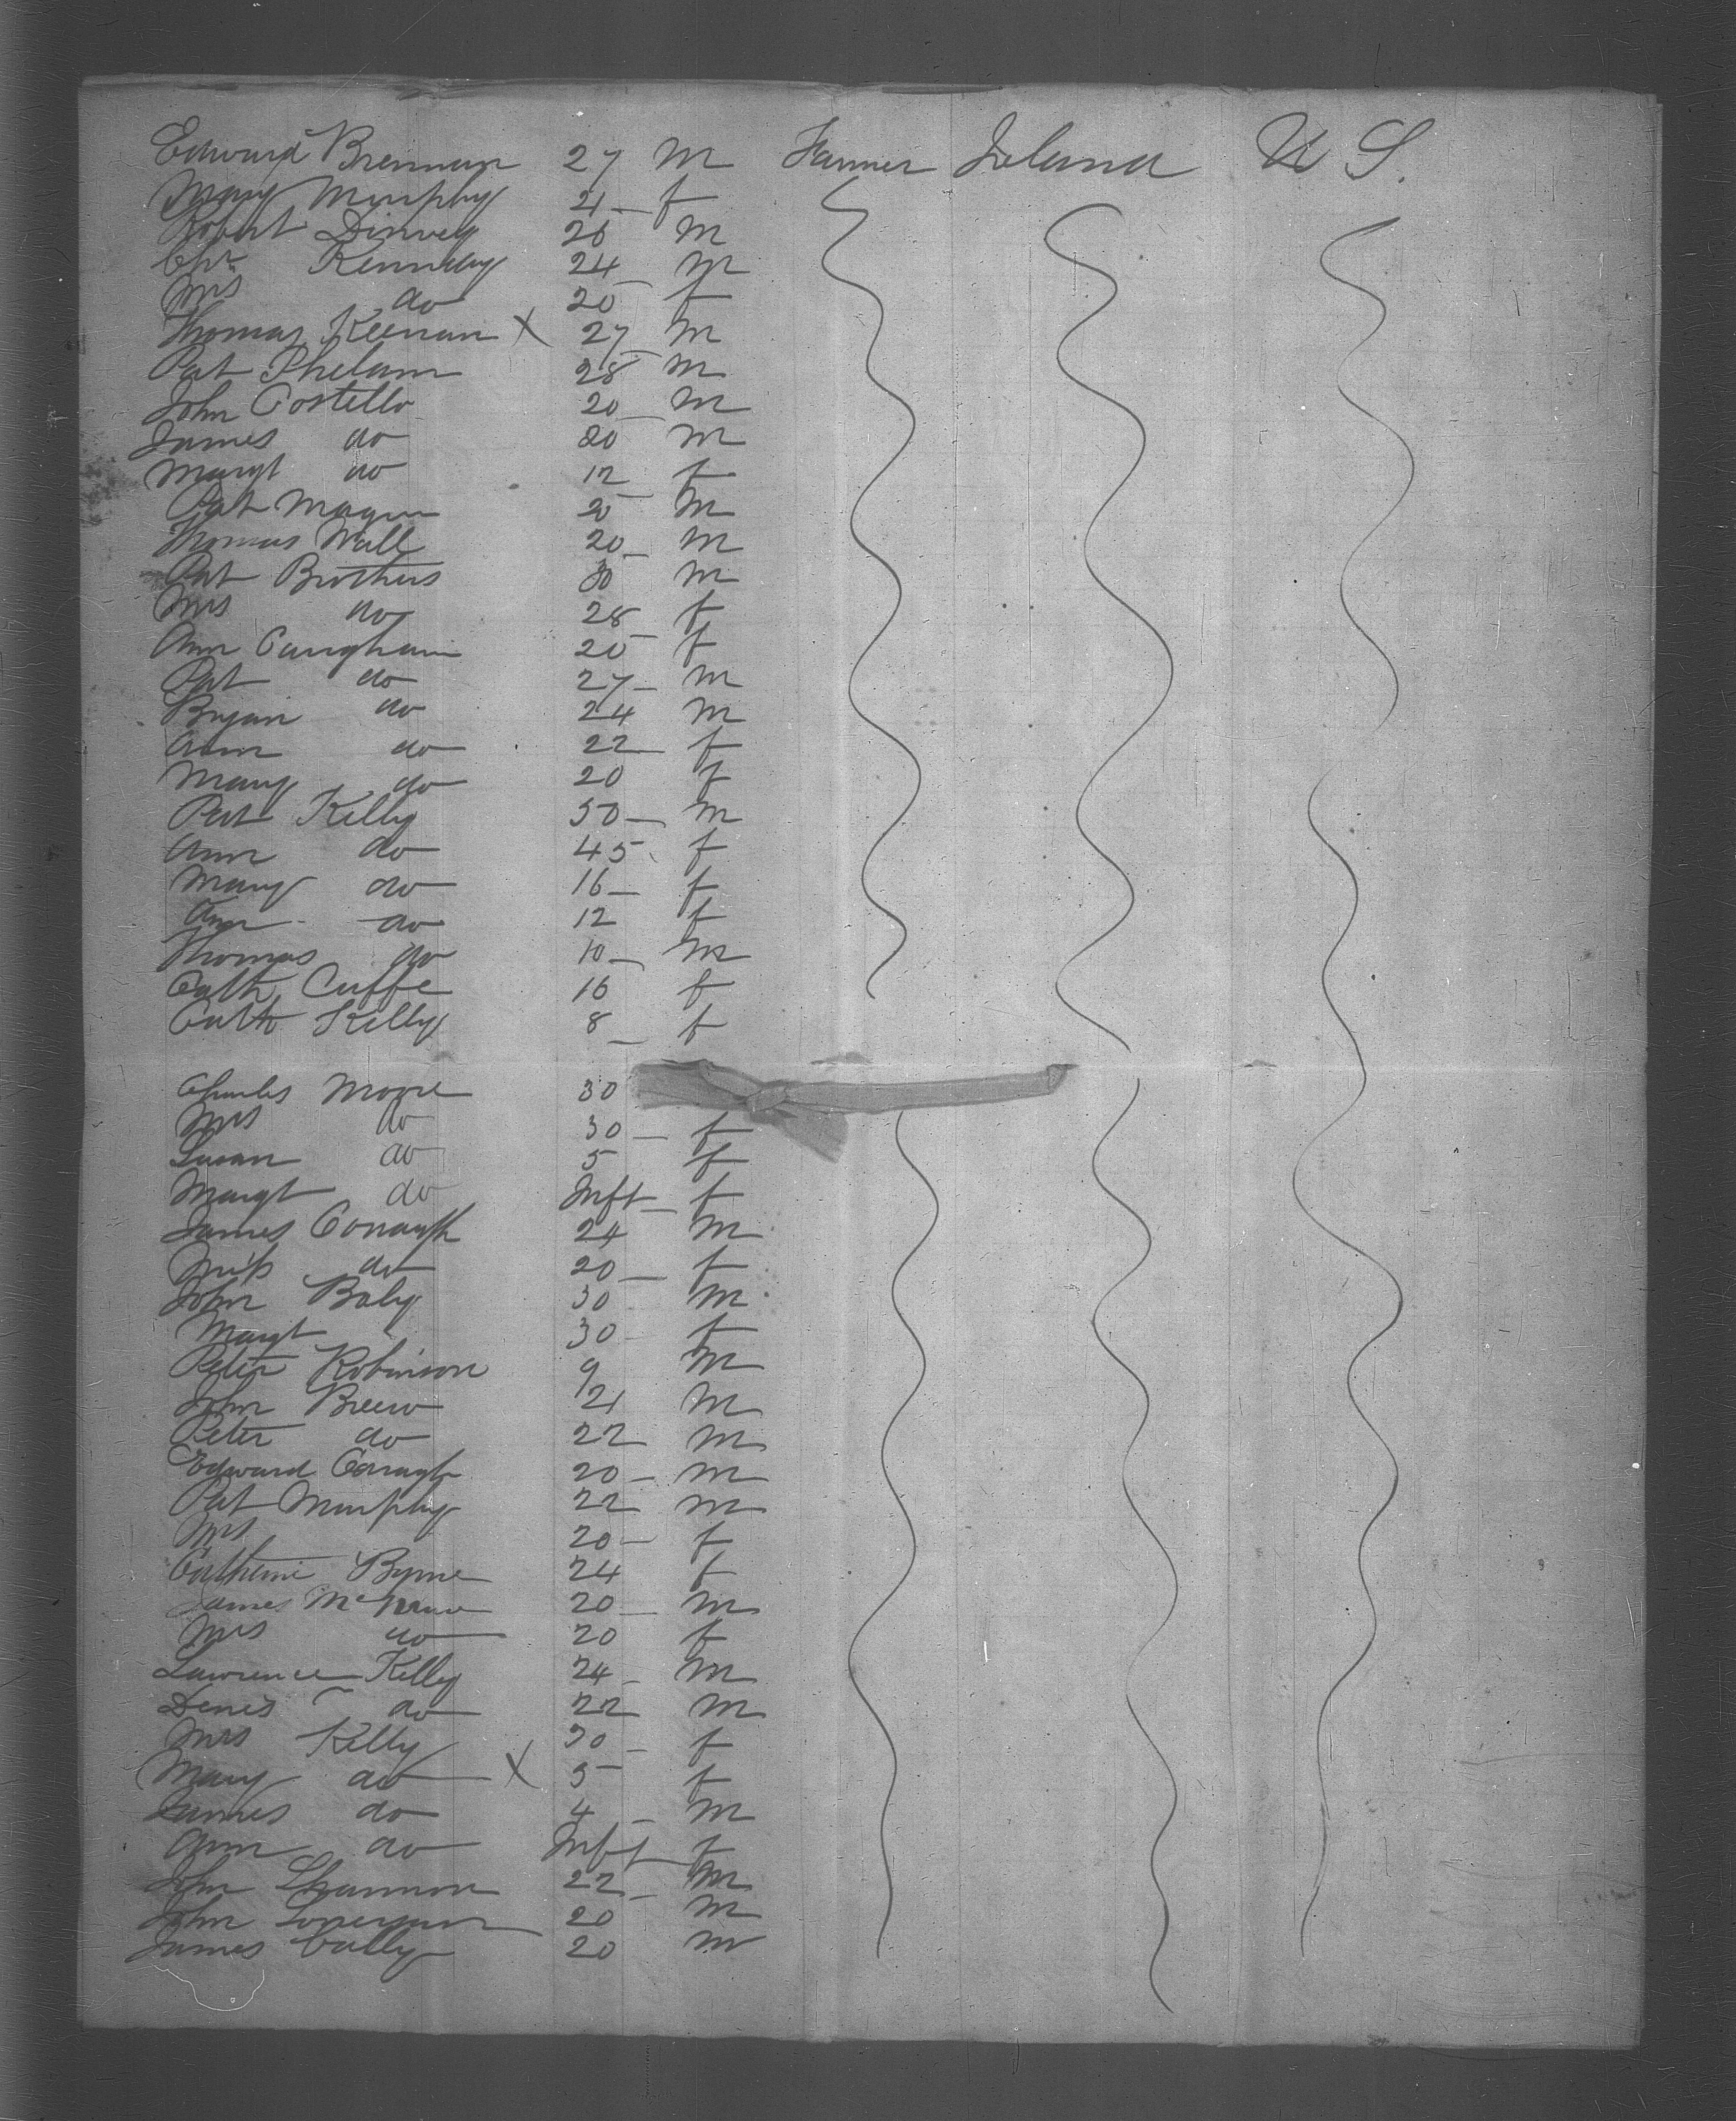 Edward Brennan 27 M Farmer Ireland U S.
Mary Murphy 21 f
Robert Dinvey 26 M
Chr Kennedy 24 M
Mrs do 20 f
Thomas Keenan X 27 M
Pat Phelam 28 M
John Costello 20 M
James do 20 M
Margt do 12 f
Pat Maguire 20 M
Thomas Wall 20 M
Pat Brothers 30 M
Mrs do 28 f
Ann Caughan 20 f
Pat do 27 M
Bryan do 24 M
Ann do 22 f
Mary do 20 f
Pat Kelly 50 M
Ann do 45 f
Mary do 16 f
Ann do 12 f
Thomas do 10 M
Cath Cuffe 16 f
Cath Kelly 8 f
Charles Moore 30
Mrs do 30 f
Susan do 5 f
Margt do Inft f
James Conaugh 24 M
Miss do 20 f
John Baly 30 M
Margt 30 f
Peter Robinson 9 M
John Breew 21 M
Peter do 22 M
Edward Conaugh 20 M
Pat Murphy 22 M
Mrs 20 f
Catherine Byrne 24 f
James Mc 20 M
Mrs do 20 f
Lawrence Kelly 24 M
Denis do 22 M
Mrs Kelly 30 f
Mary do X 5 f
James do 4 M
Ann do Inft f
John Shannon 22 M
John Lonergan 20 M
James Cully 20 M